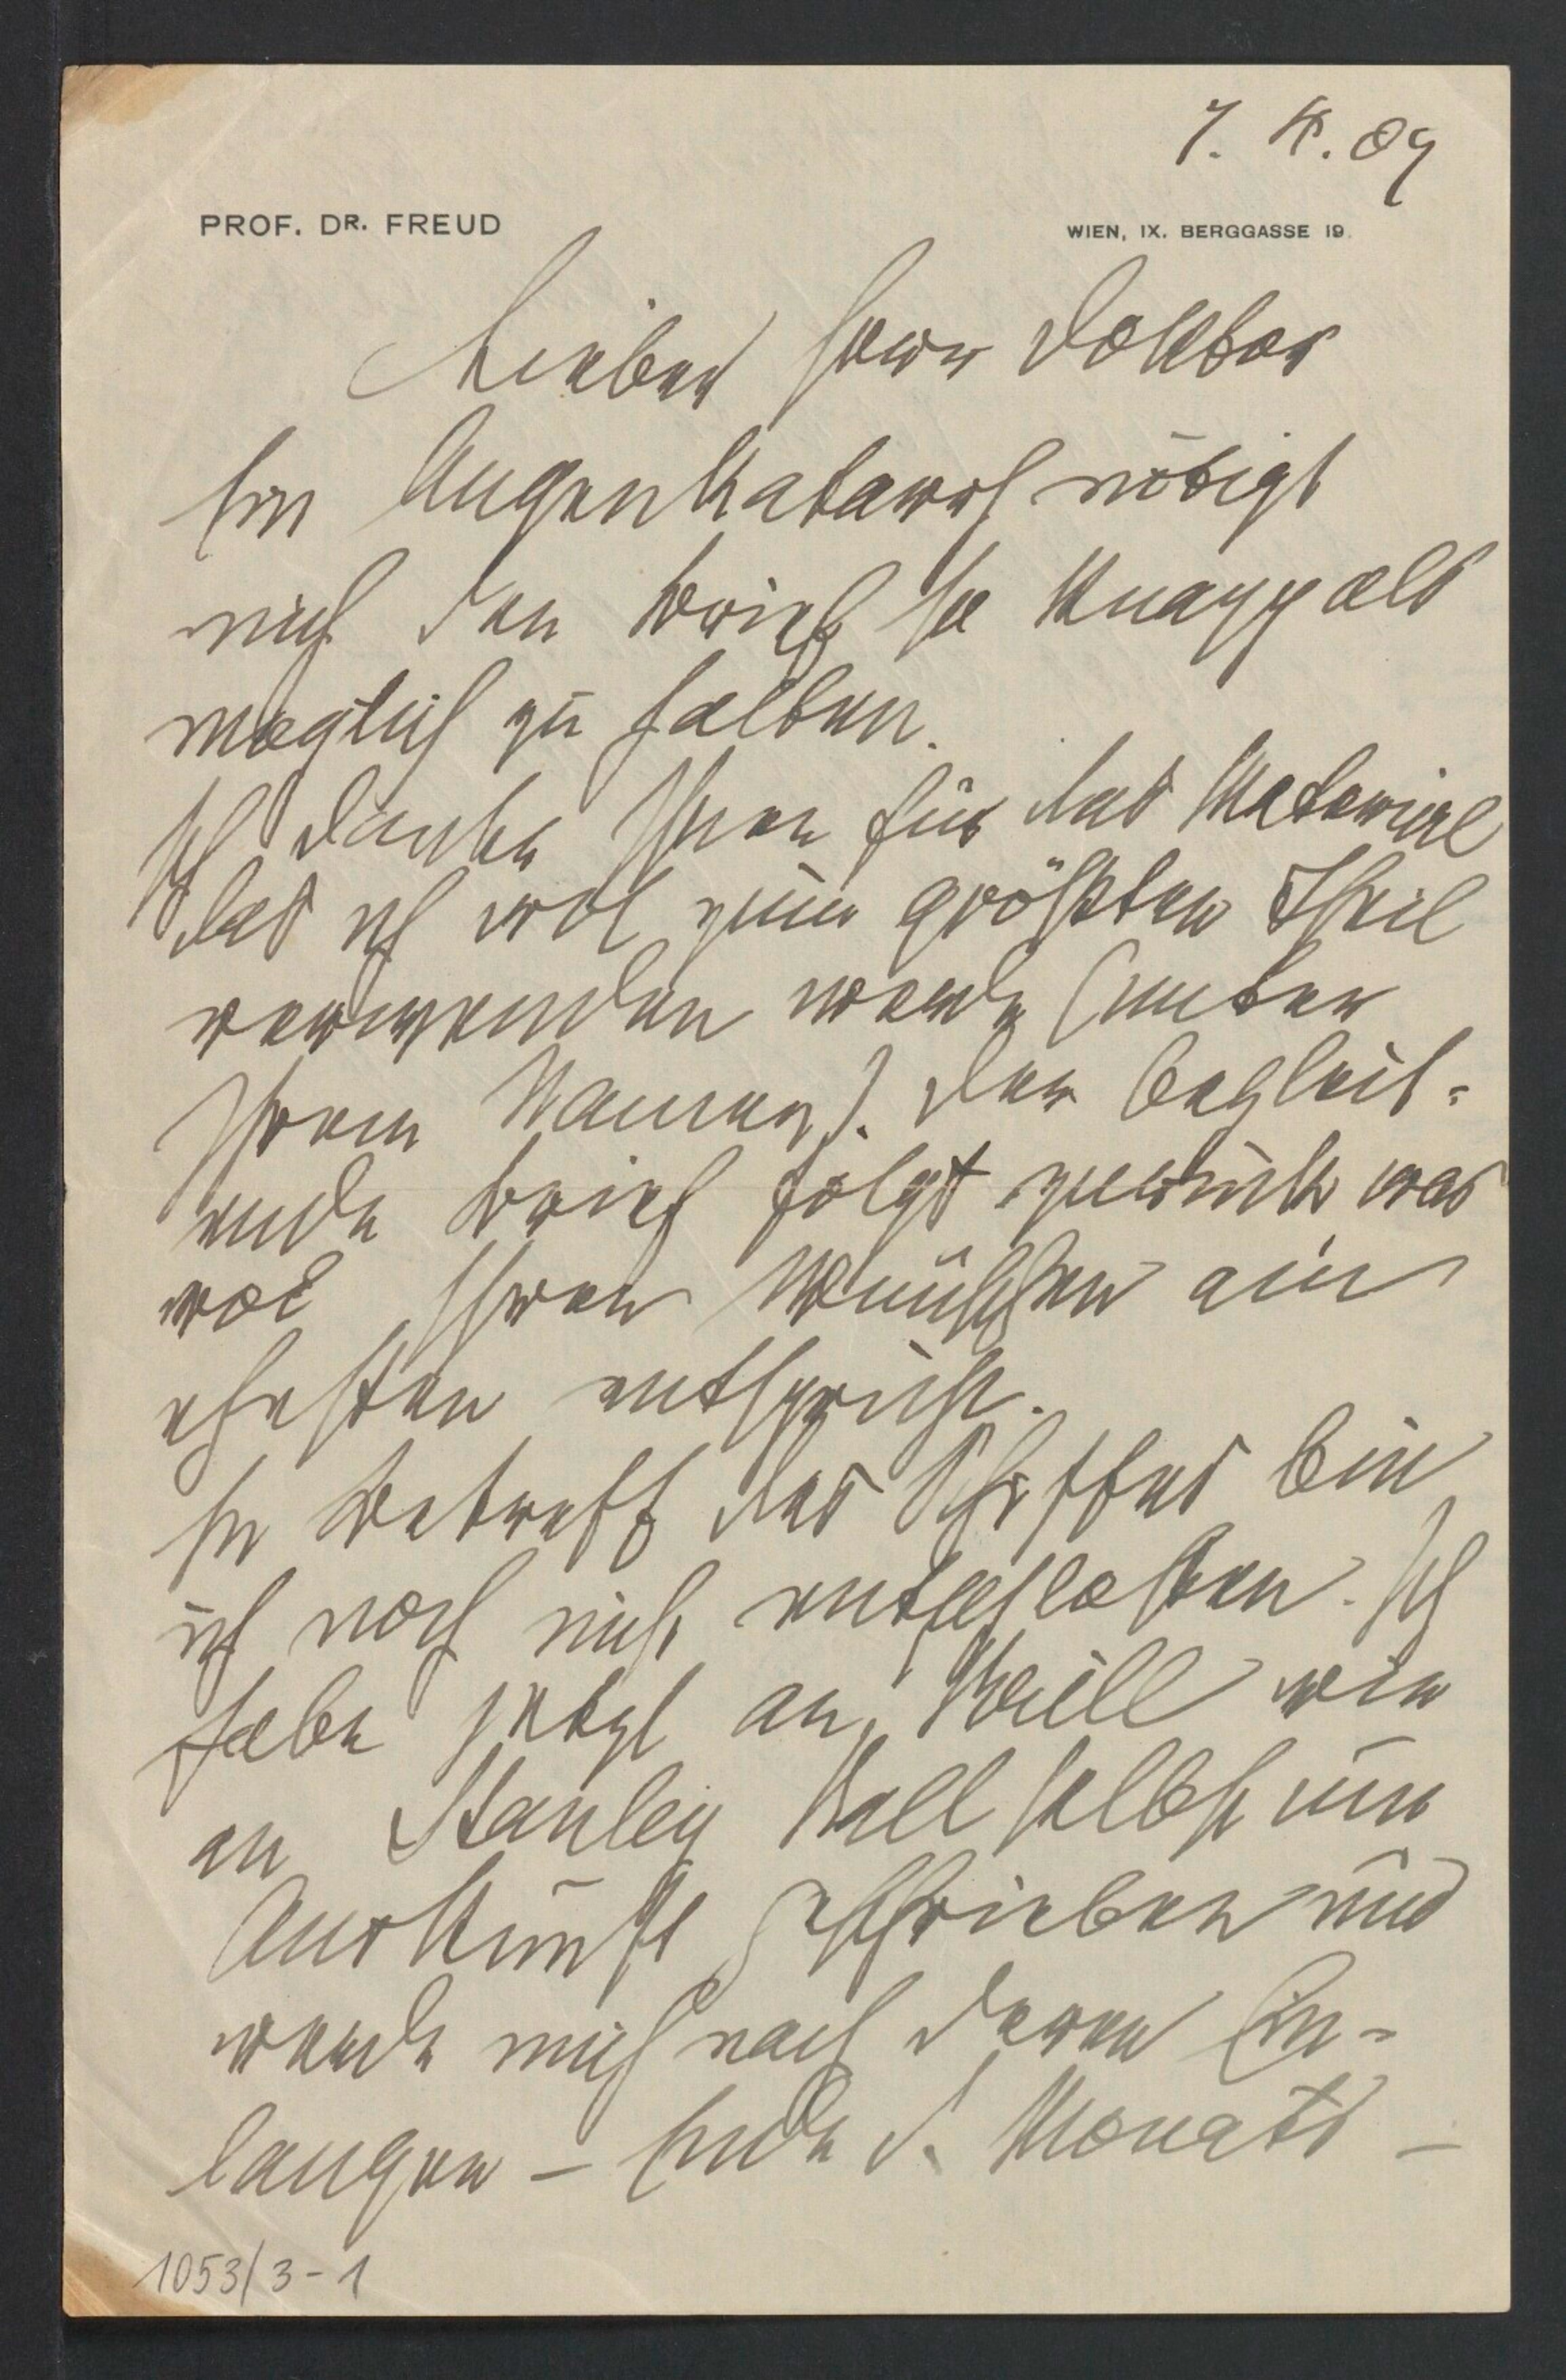 7. IV. 09
PROF. DR. FREUD
WIEN, IX. BERGGASSE 19.
Lieber Herr Doktor
Ein Augenkatarrh nötigt
mich den Brief so knapp als
möglich zu halten.
Ich danke Ihnen für das Material
das ich wol zum größten Theil
verwenden werde (unter
Ihrem Namen). Der begleit-
ende Brief folgt zurück was
wol Ihren Wünschen am
ehesten entspricht.
In Betreff des Schiffes bin
ich noch nicht entschlossen. Ich
habe jetzt an Brill wie
an Stanley Hall selbst um
Auskunft geschrieben und
werde mich nach deren Ein-
langen – Ende d. Monats –
1053/3-1